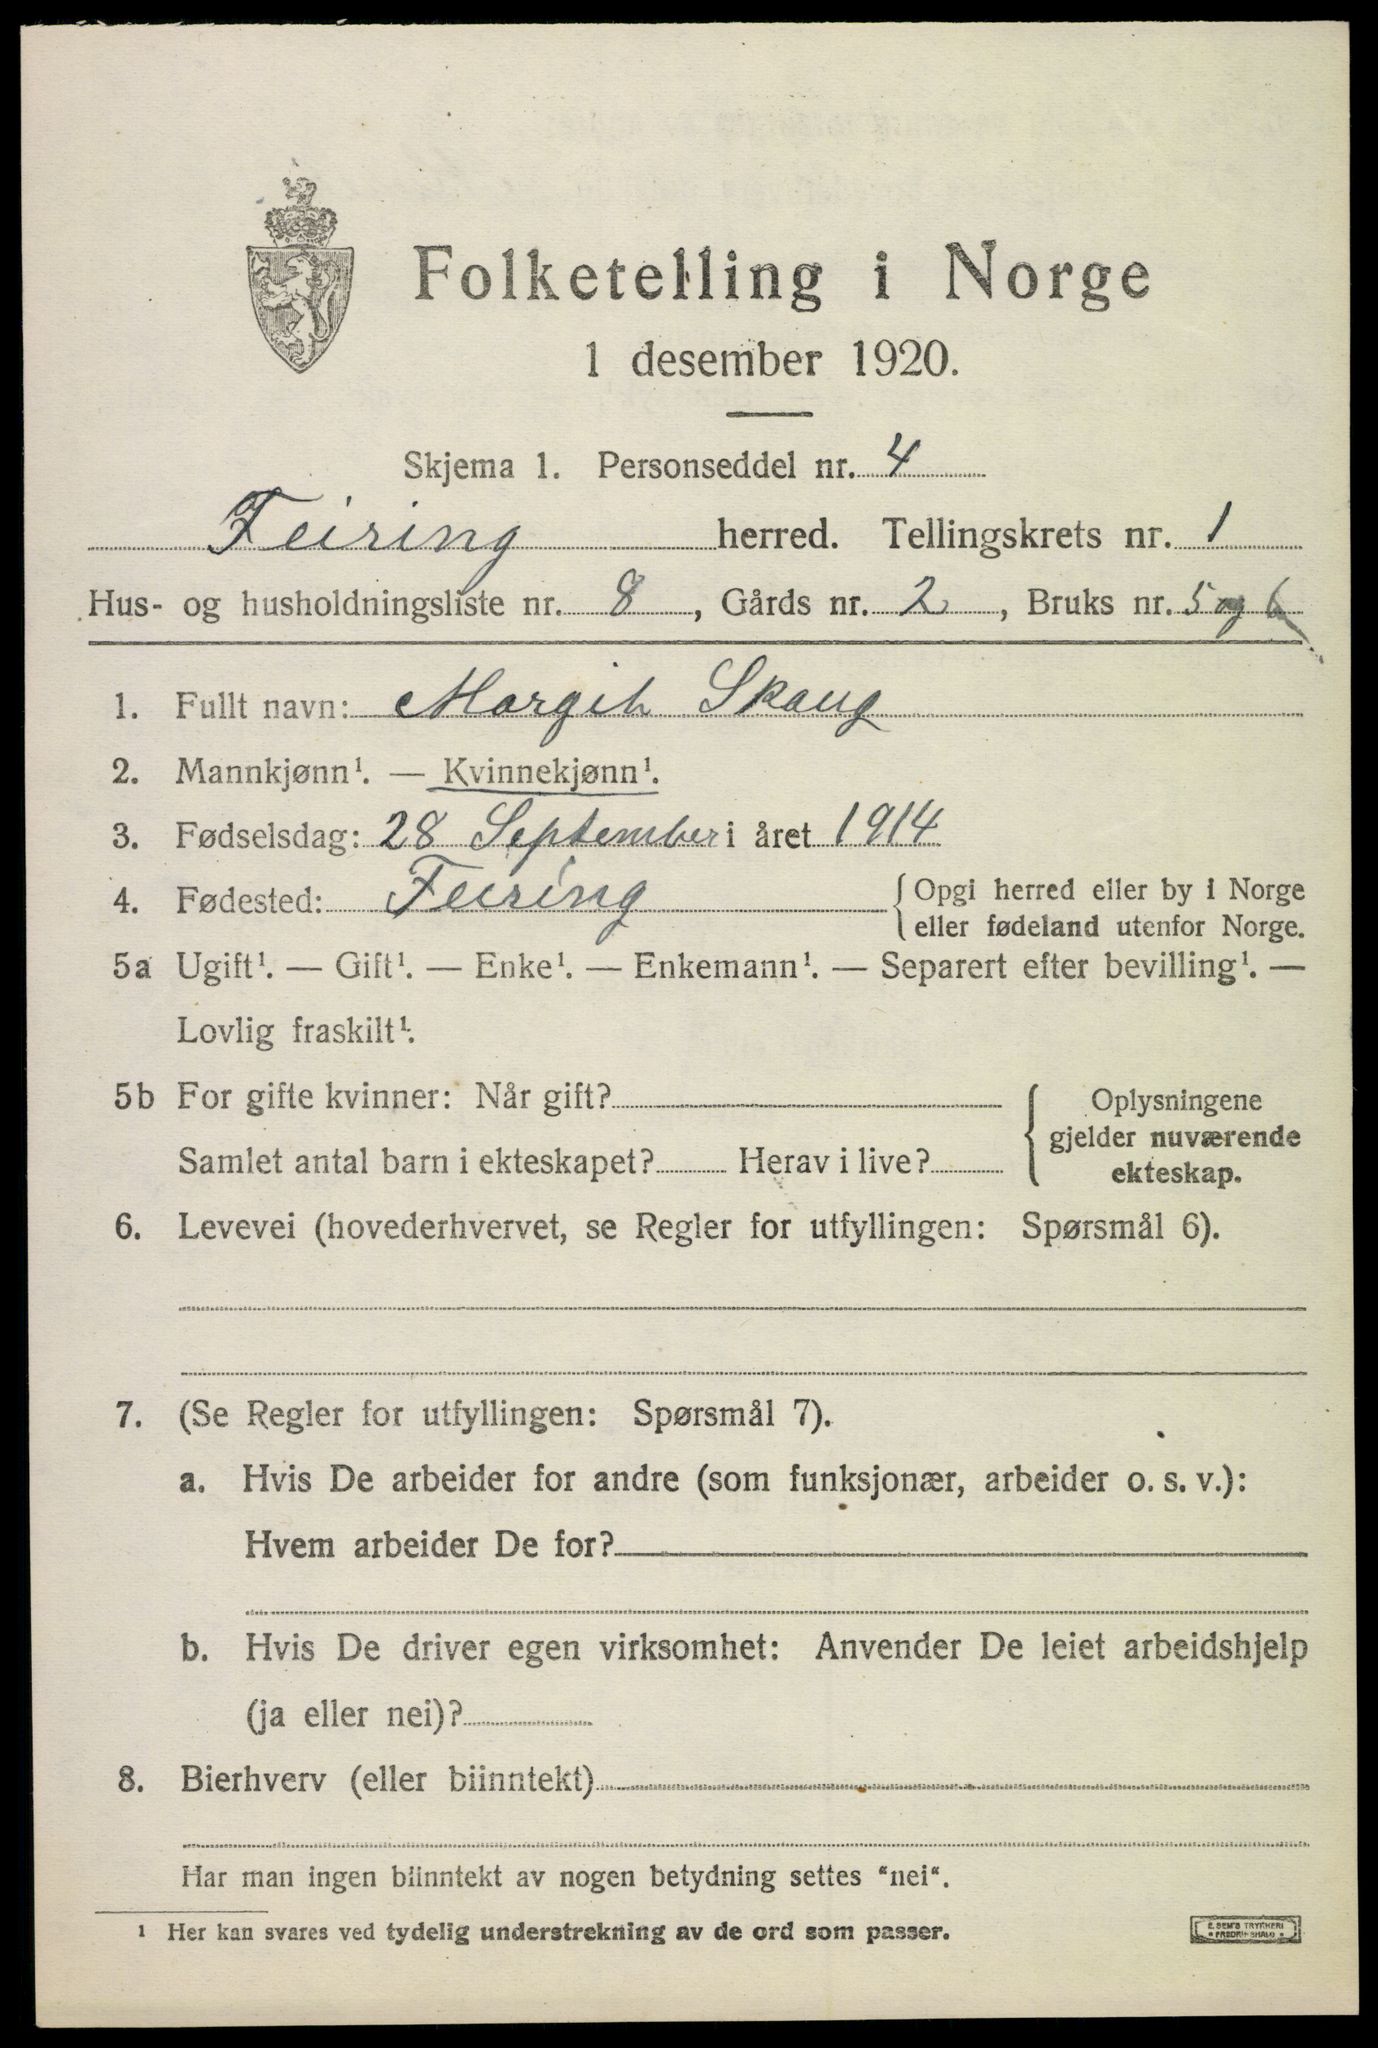 Folketelling i Norge
1 desember 1920.
Skjema 1. Personseddel nr. 4
Feiring herred. Tellingskrets nr. 1
Hus- og husholdningsliste nr. 8, Gårds nr. 2, Bruks nr. 5 og 6
1. Fullt navn: Margith Skaug
2. Mannkjønn¹. — Kvinnekjønn¹.
3. Fødselsdag: 28 September i året 1914
4. Fødested: Feiring { Opgi herred eller by i Norge
eller fødeland utenfor Norge.
5a Ugift¹. — Gift¹. — Enke¹. — Enkemann¹. — Separert efter bevilling¹. —
Lovlig fraskilt¹.
5b For gifte kvinner: Når gift? { Oplysningene
gjelder nuværende
ekteskap.
Samlet antal barn i ekteskapet? Herav i live?
6. Levevei (hovederhvervet, se Regler for utfyllingen: Spørsmål 6).
7. (Se Regler for utfyllingen: Spørsmål 7).
a. Hvis De arbeider for andre (som funksjonær, arbeider o. s. v.):
Hvem arbeider De for?
b. Hvis De driver egen virksomhet: Anvender De leiet arbeidshjelp
(ja eller nei)?
8. Bierhverv (eller biinntekt)
Har man ingen biinntekt av nogen betydning settes "nei".
¹ Her kan svares ved tydelig understrekning av de ord som passer.
E. SEM'S TRYKKERI
• FREDRIKSHALD •